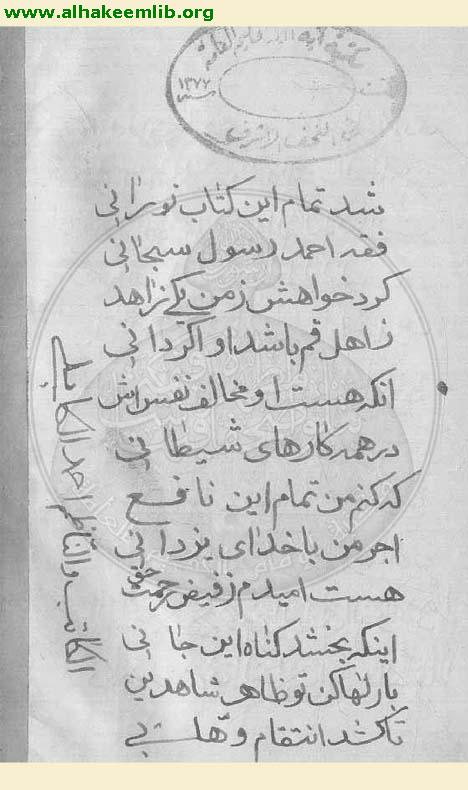 www.alhakeemlib.org
مكتبة آية الله الحكيم العامة
١٣٧٧
النجف الاشرف
شد تمام این کتاب نورانی
فقه احمد رسول سبحانی
کرد خواهش ز من یکی زاهد
ز اهل قم باشد او اگر دانی
انکه هست او مخالف نفس اش
در همه کارهای شیطانی
که کنم من تمام این نافع
اجر من با خدای یزدانی
هست امیدم ز فیض رحمت حق
اینکه بخشد گناه این جانی
بارلها کن تو ظاهر شاه دین
تا کشد انتقام
الکاتب والناظم احمد الکابلی